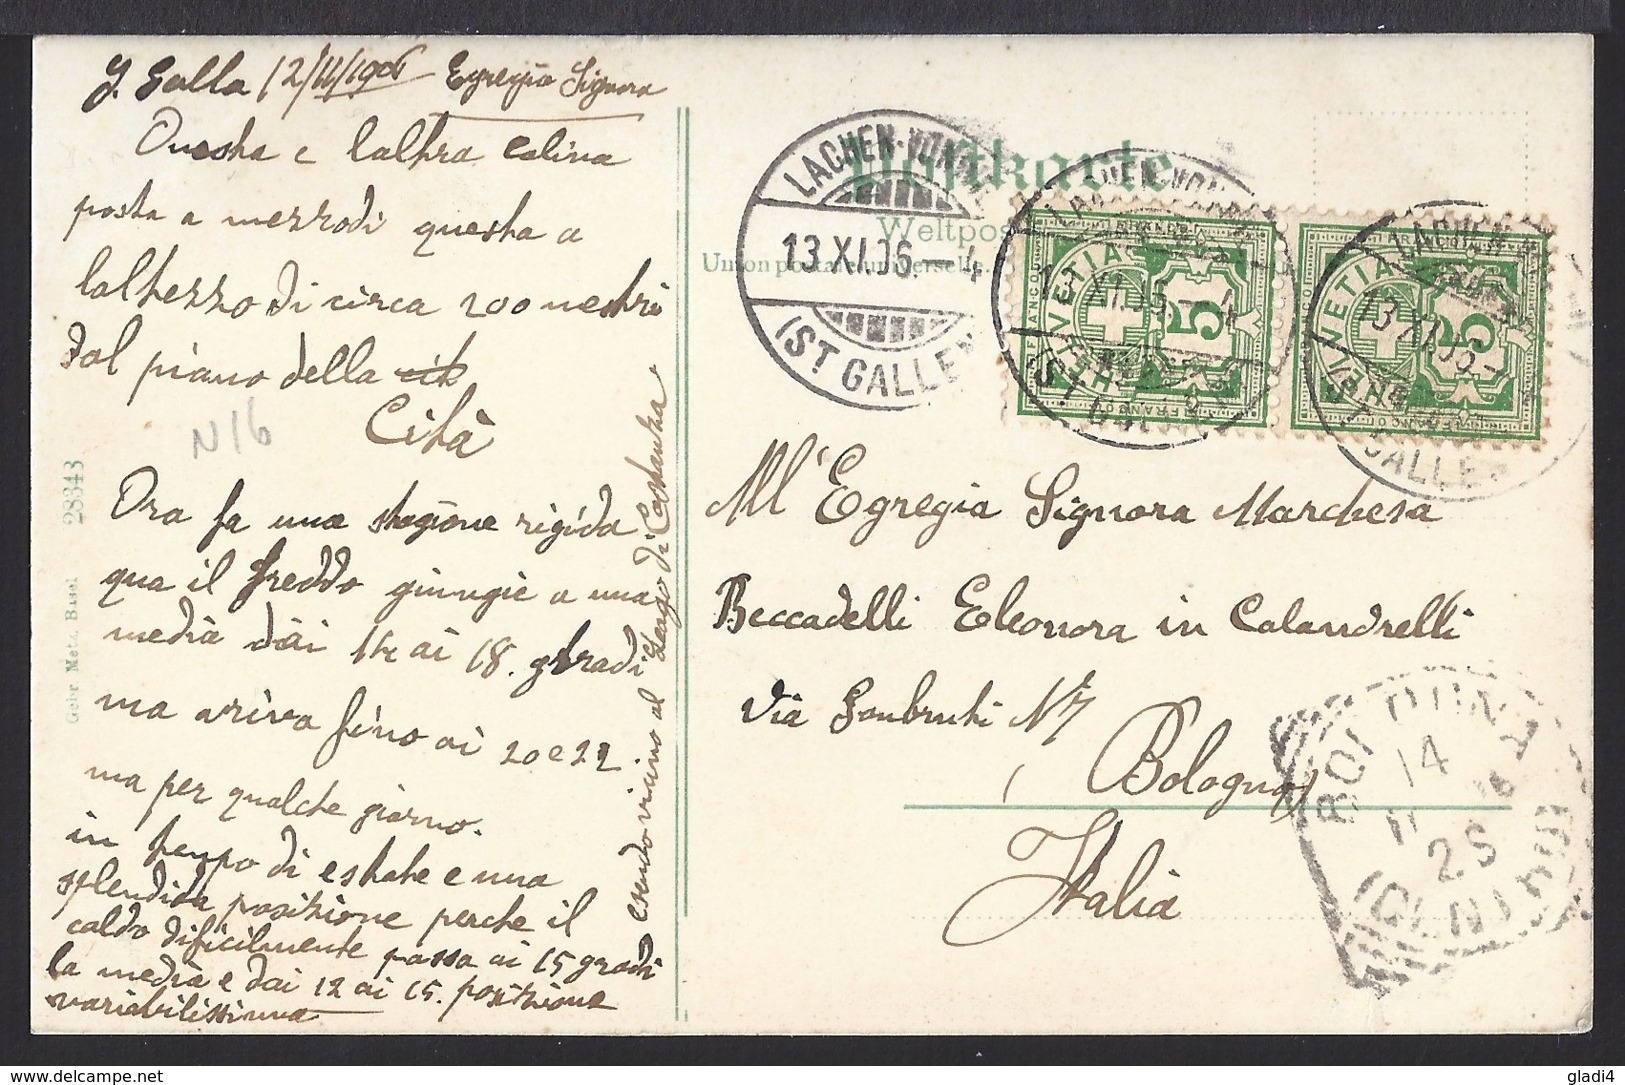 S. Galla 12/11/1906 Egregia Signora
Questa e l'altra colina
posta a mezzodi questa a
laltezza di circa 200 metri
dal piano della
Cità
N 16
Ora fa una stagione rigida
qua il freddo giungie a una
media dai 14 ai 18. gradi
ma ariva fino ai 20 e 22
ma per qualche giorno.
in tempo di estate e una
splendida posizione perche il
caldo dificilmente passa ai 15 gradi
la media e dai 12 ai 15. posizione
variabilissima
esendo vicino al Lago di Costanza
Gebr Metz Basel 28343
Postkarte
Weltpos
Union postale universelle.
LACHEN-VON
13 XI.06.-4
(ST GALLEN
HELVETIA
5
FRANCO
13 XI.06.-4
(ST GALLEN
LACHEN
HELVETIA
5
FRANCO
13 XI.06.-4
ST GALLEN
All' Egregia Signora Marchesa
Beccadelli Eleonora in Calandrelli
via Gombruti N 7
Bologna
Italia
14
11
2S
gladi4